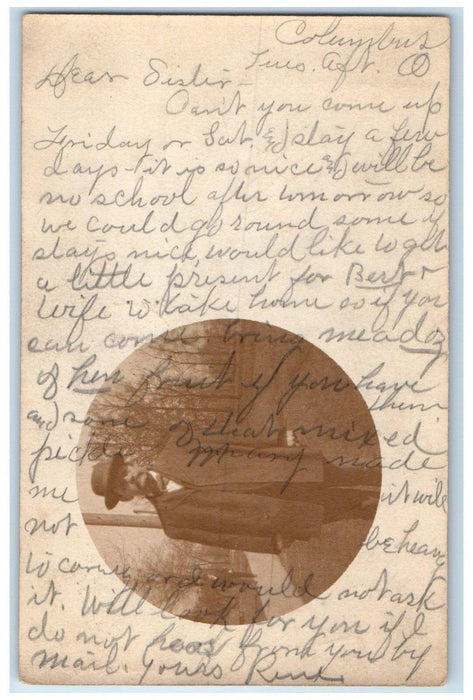 Columbus
Tues. Aft. O
Dear Sister -
Can't you come up
Friday or Sat. & stay a few
days - it is so nice & will be
no school after tomorrow so
we could go round some if
stays nice, would like to get
a little present for Bert &
wife to take home so if you
can come bring me a doz
of hen fruit if you have them
and some of that mixed
pickle mammy made
me it will
not be heavy
to carry and would not ask
it. Will look for you if I
do not hear from you by
mail. Yours